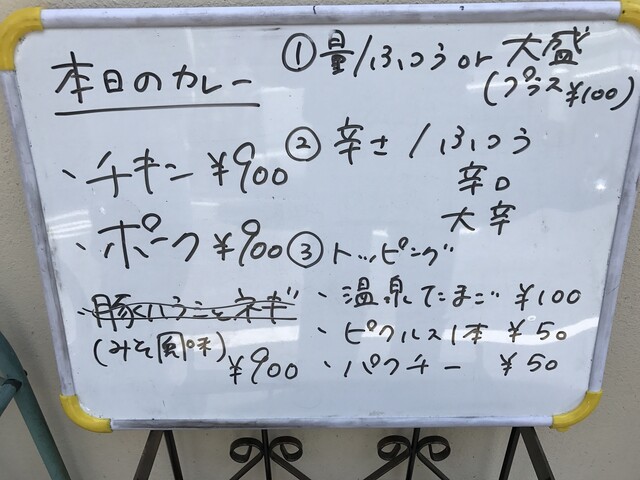 本日のカレー
・チキン ¥900
・ポーク ¥900
・豚ばらことネギ
(みそ風味)
¥900
①量/ふつう or 大盛
(プラス¥100)
②辛さ/ふつう
辛口
大辛
③トッピング
・温泉たまご ¥100
・ピクルス1本 ¥50
・パクチー ¥50